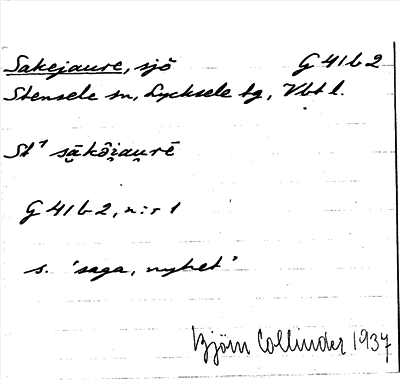 Sakejaure, sjö G 41 b 2
Stensele sn, Lycksele tg, Vbt l.
St⁷ sākôi̯au̯rē
G 41 b 2, n:r 1
s. 'saga, nyhet'
Björn Collinder 1937